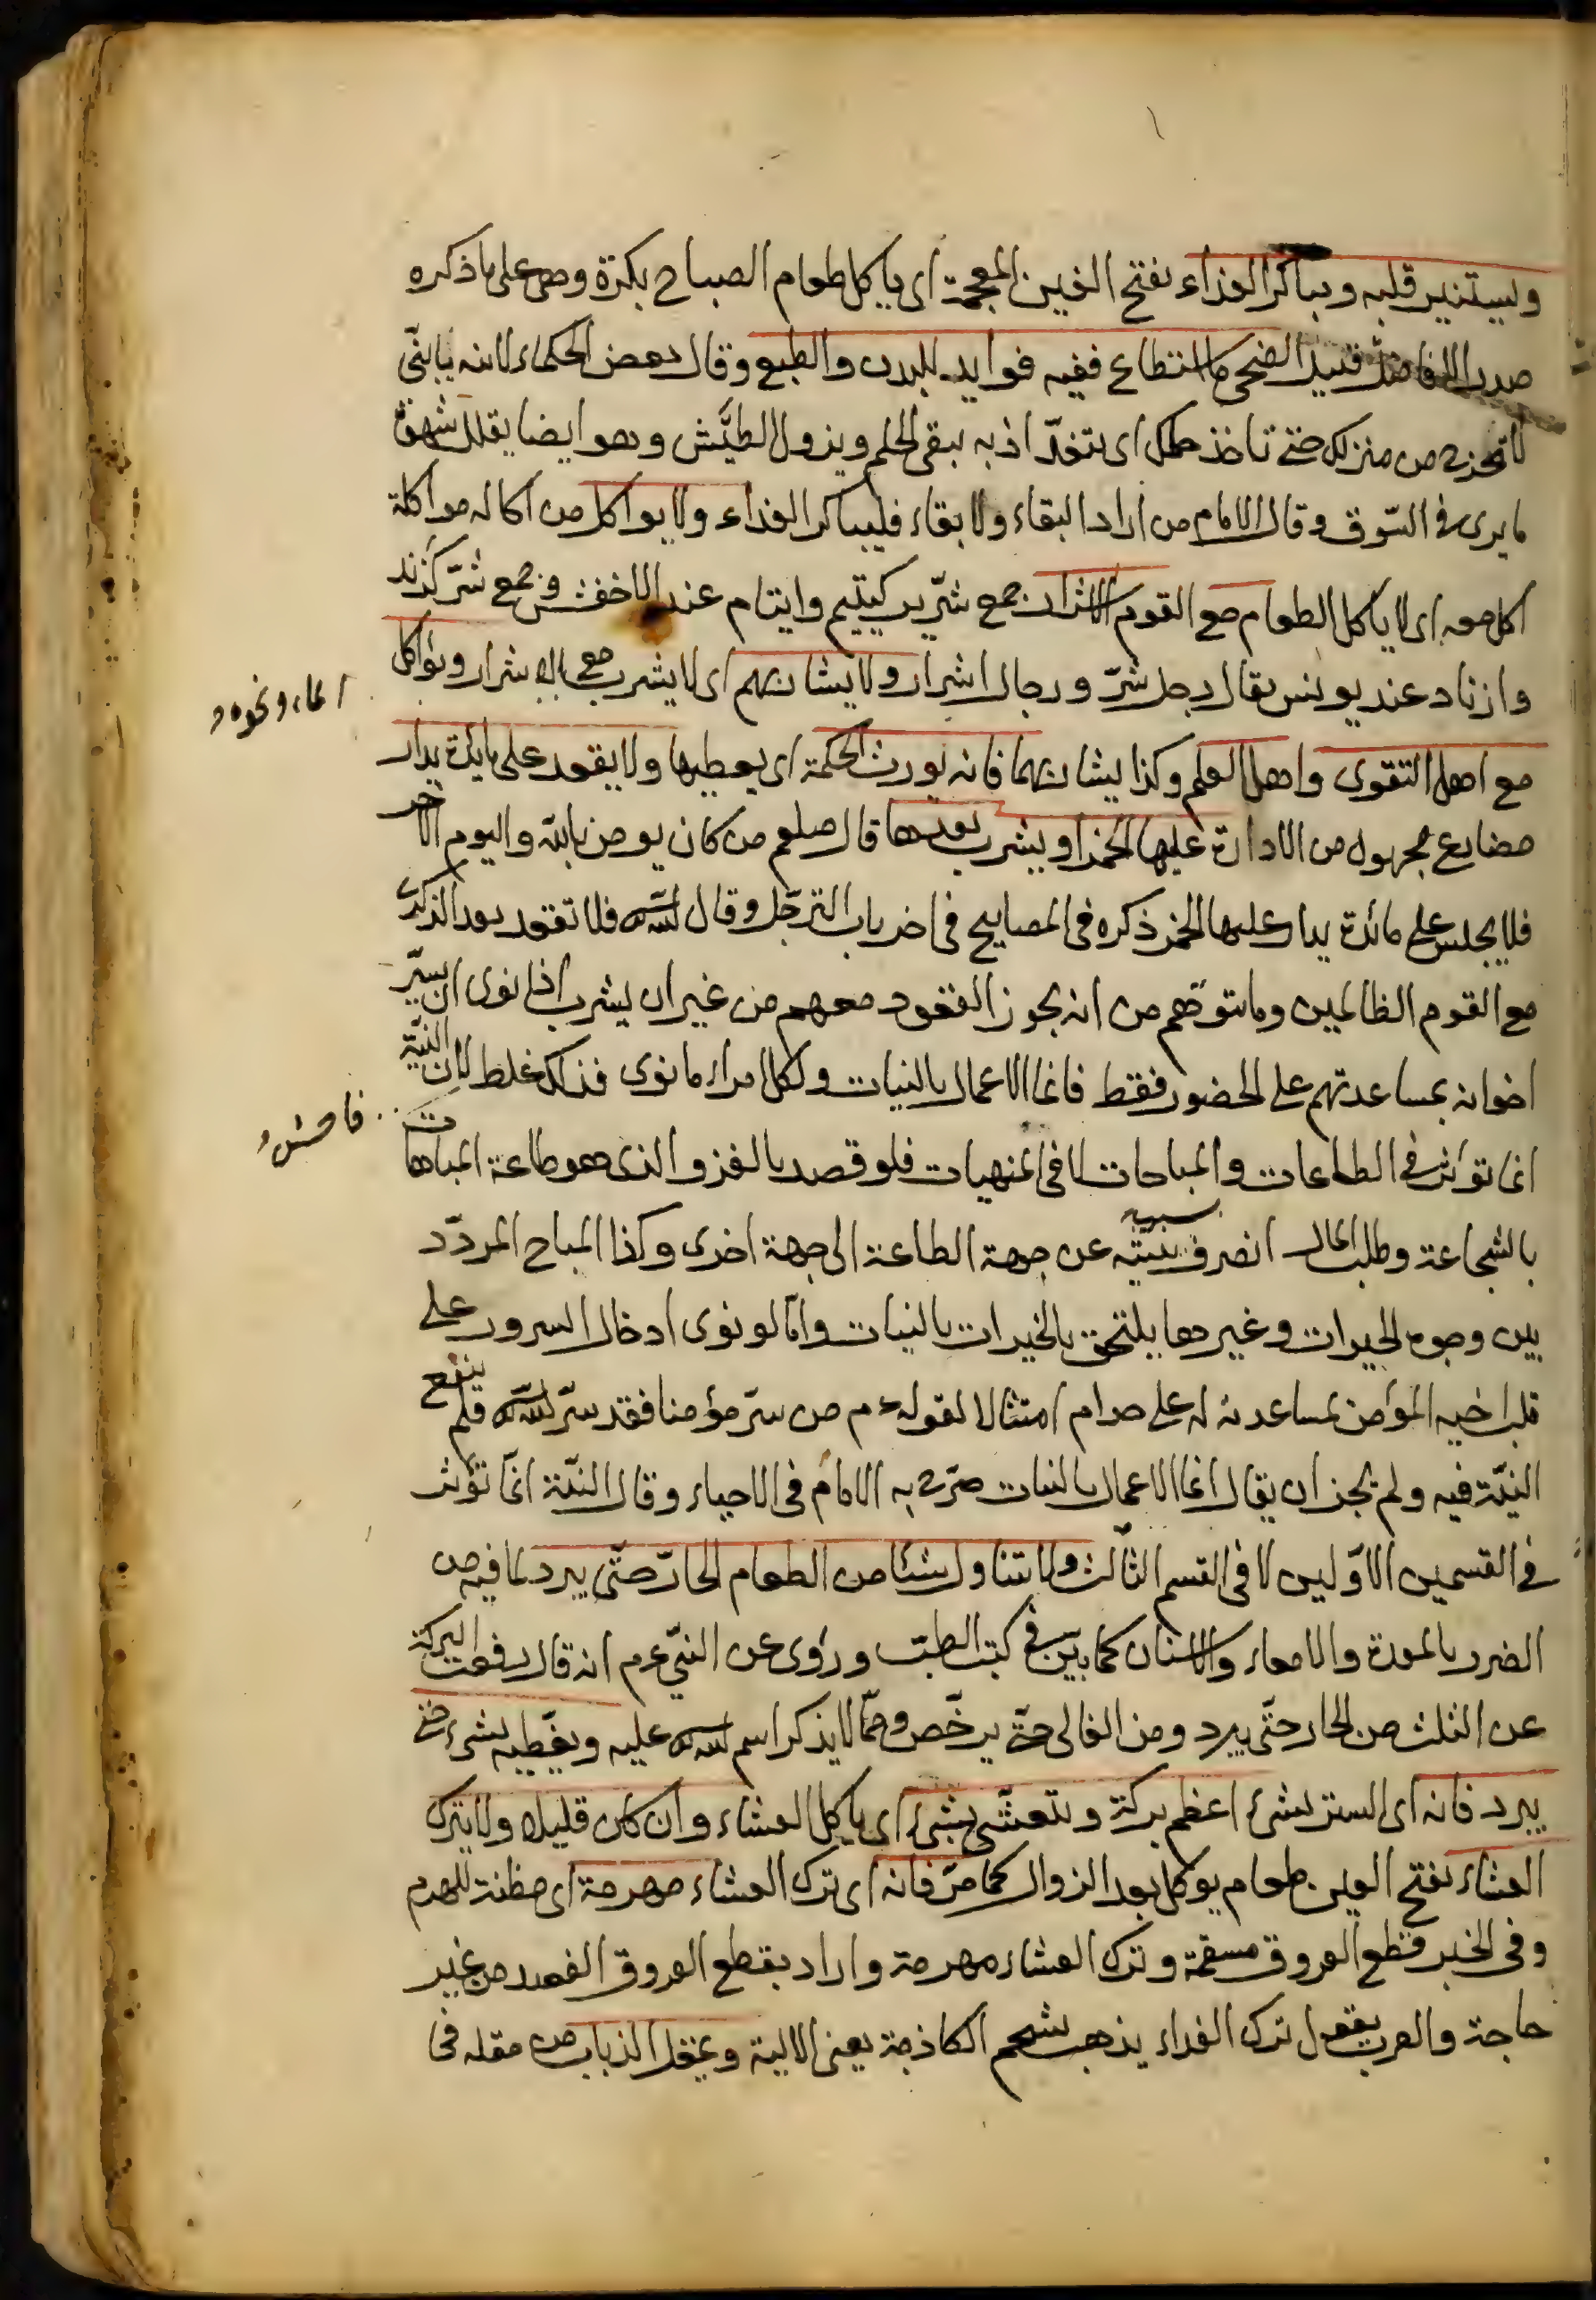 ويستنير قلبه ويباكر الغذاء بفتح الغين المعجمة اى ياكل طعام الصباح بكرة وهى على ما ذكره
صدر الافاضل قبيل الضحى ما استطاع ففيه فوايد للبدن والطبع وقال بعض الحكماء لابنه يا بنىّ
لا تخرج من منزلك حتى تاخذ حلمك اى تتغدّ اذ به يبقى الحلم ويزول الطيش وهو ايضا يقلل شهوة
ما يرى فى السّوق وقال الامام من اراد البقاء ولا بقاء فليباكر الغذاء ولا يواكل من آكاله مواكلة
اكل معه اى لا ياكل الطعام مع القوم الاشرار جمع شرّير كيتيم وايتام عند الاخفش وجمع شرّ كزند
وازناد عند يونس يقال رجل شرّ ورجال اشرار ولا يشاربهم اى لا يشرب مع الاشرار ويؤاكل
الماء ونحوه
مع اهل التقوى واهل العلم وكذا يشاربهما فانه يورث الحكمة اى يعطيها ولا يقعد على مائدة يدار
مضارع مجهول من الادارة عليها الخمر او يشرب بعدها قال صلعم من كان يومن بالله واليوم الآخر
فلا يجلس على مائدة يدار عليها الخمر ذكره فى المصابيح فى اخر باب الترجّل وقال الله فلا تقعد بعد الذكرى
مع القوم الظالمين وما يتوهّم من انه يجوز القعود معهم من غير ان يشرب اذا نوى ان يسرّ
اخوانه بمساعدتهم على الحضور فقط فانما الاعمال بالنيات ولكل امراء ما نوى فذلك غلط لان النيّة
فاحش
انما تؤثر فى الطاعات والمباحات لا فى المنهيات فلو قصد بالغزو الذى هو طاعة المباهات
بالشجاعة وطلب المال انصرف بنيّته عن جهة الطاعة الى جهة اخرى وكذا المباح المردّد
بين وجوه الخيرات وغيرها يلتحق بالخيرات بالنيات وامّا لو نوى ادخال السرور على
قلب اخيه المؤمن بمساعدته له على حرام امتثالا لقوله عم من سرّ مؤمنا فقد سرّ الله فلم ينفع
النيّة فيه ولم يجز ان يقال انما الاعمال بالنيات صرّح به الامام فى الاحياء وقال النيّة انّما تؤثر
فى القسمين الاوّلين لا فى القسم الثّالث ولا يتناول شئا من الطعام الحارّ حتّى يبرد لما فيه من
الضرر بالمعدة والامعاء والاسنان كما بيّن فى كتب الطبّ وروى عن النبىّ عم انه قال رفعت البركة
عن الثلث من الحار حتّى يبرد ومن الغالى حتى يرخّص وممّا لا يذكر اسم الله عليه ويغطيه بشىء حتى
يبرد فانه اى الستر بشىء اعظم بركة ويتعشّى بشىء اى ياكل العشاء وان كان قليلا ولا يترك
العشاء بفتح العين طعام يوكل بعد الزوال كما مرّ فانه اى ترك العشاء مهرمة اى مظنة للهرم
وفى الخبر قطع العروق مسقمة وترك العشاء مهرمة واراد بقطع العروق الفصد من غير
حاجة والعرب يقول ترك الغداء يذهب بشحم الكاذبة يعنى الالية ويمقل الذباب من مقله فى